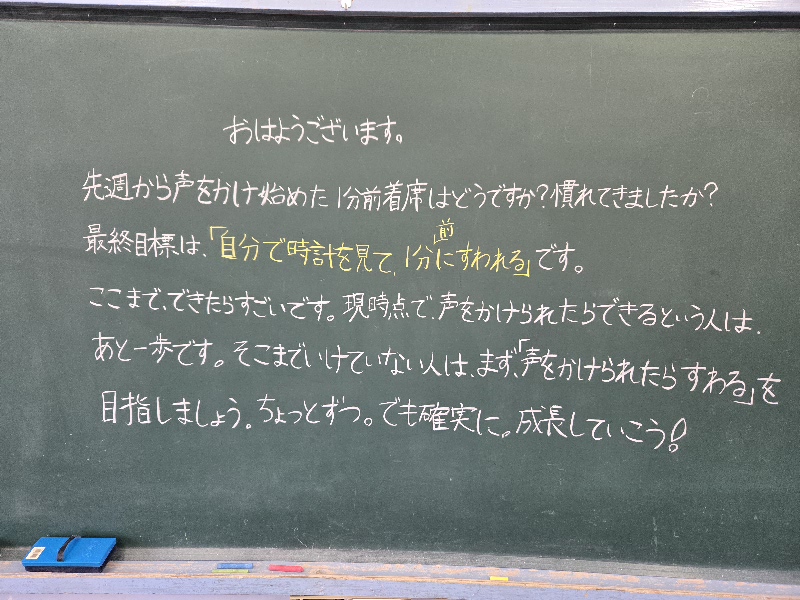 おはようございます。
先週から声をかけ始めた1分前着席はどうですか?慣れてきましたか?
最終目標は、「自分で時計を見て、1分前にすわれる」です。
ここまで、できたらすごいです。現時点で、声をかけられたらできるという人は、
あと一歩です。そこまでいけていない人は、まず、「声をかけられたらすわる」を
目指しましょう。ちょっとずつ。でも確実に。成長していこう!